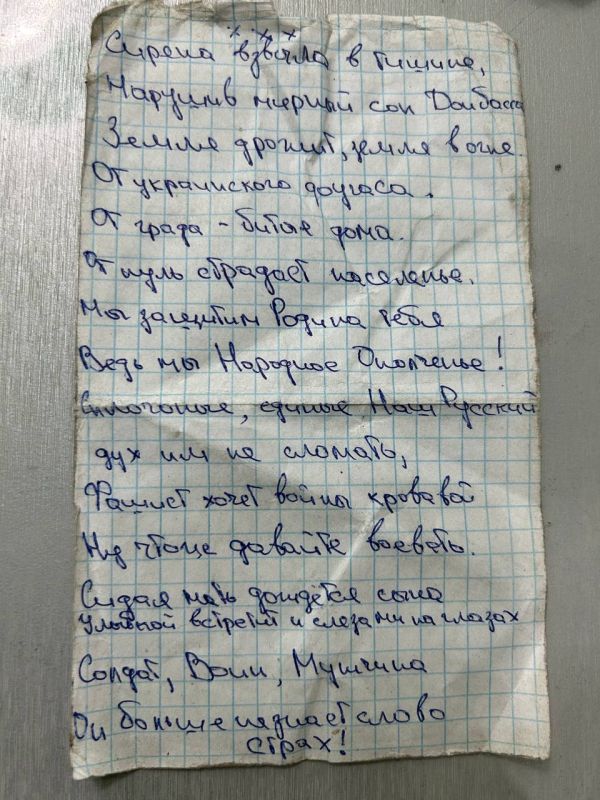 х х х
Сирена взвыла в тишине,
Нарушив мирный сон Донбасса
Земля дрожит, земля в огне.
От украинского фугаса.
От града - битые дома.
От пуль страдает населенье.
Мы защитим Родина тебя
Ведь мы Народное Ополченье!
Сплоченые, единые Наш Русский
дух им не сломать,
Фашист хочет войны кровавой
Ну чтоще давайте воевать.
Сидая мать дождётся сына
Улыбкой встретит и слезами на глазах
Солдат, Воин, Мущина
Он больше незнает слово
страх!